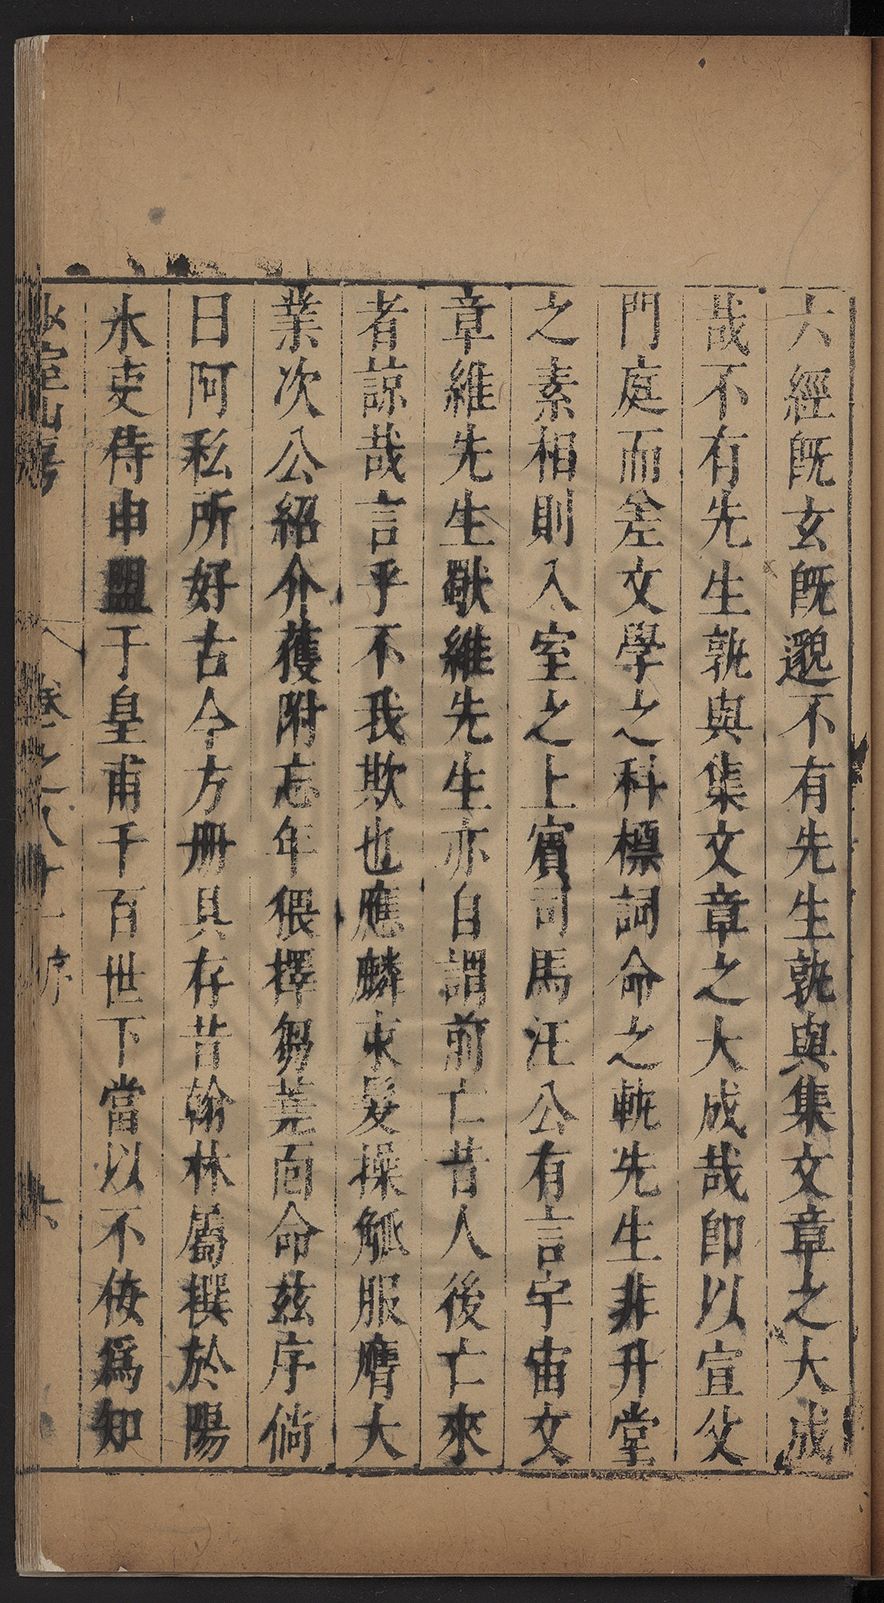 六經旣玄旣邈不有先生孰與集文章之大成
哉不有先生孰與集文章之大成哉卽以宣父
門庭而差文學之科標詞命之軌先生非升堂
之素相則入室之上賓司馬汪公有言宇宙文
章維先生獻維先生亦自謂前亡昔人後亡來
者諒哉言乎不我欺也應麟束髮操觚服膺大
業次公紹介獲附忘年猥擇芻蕘面命茲序倘
曰阿私所好古今方册具存昔翰林屬撰於陽
氷吏侍申盟于皇甫千百世下當以不侫爲知
少室山房 卷之八十一序 六